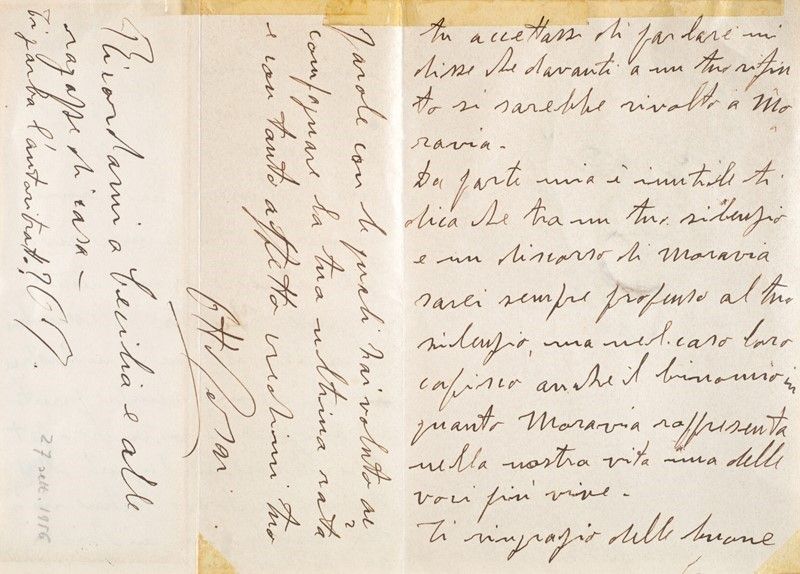 tu accettassi di parlare mi
disse che davanti a un tuo rifiu
to si sarebbe rivolto a Mo
ravia.
Da parte mia è inutile ti
dica che tra un tuo silenzio
e un discorso di Moravia
sarei sempre propenso al tuo
silenzio, ma nel caso loro
capisco anche il binomio in
quanto Moravia rappresenta
nella nostra vita una delle
voci più vive.
Ti ringrazio delle buone
parole con le quali hai voluto ac
compagnare la tua ultima rata
e con tanto affetto credimi tuo
Ricordami a Cecilia e alle
ragazze di casa —
Ti garba l'autoritratto?
27 sett. 1956